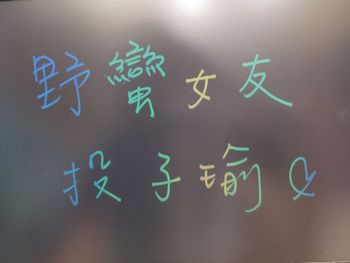 野蠻女友
投子瑜♡